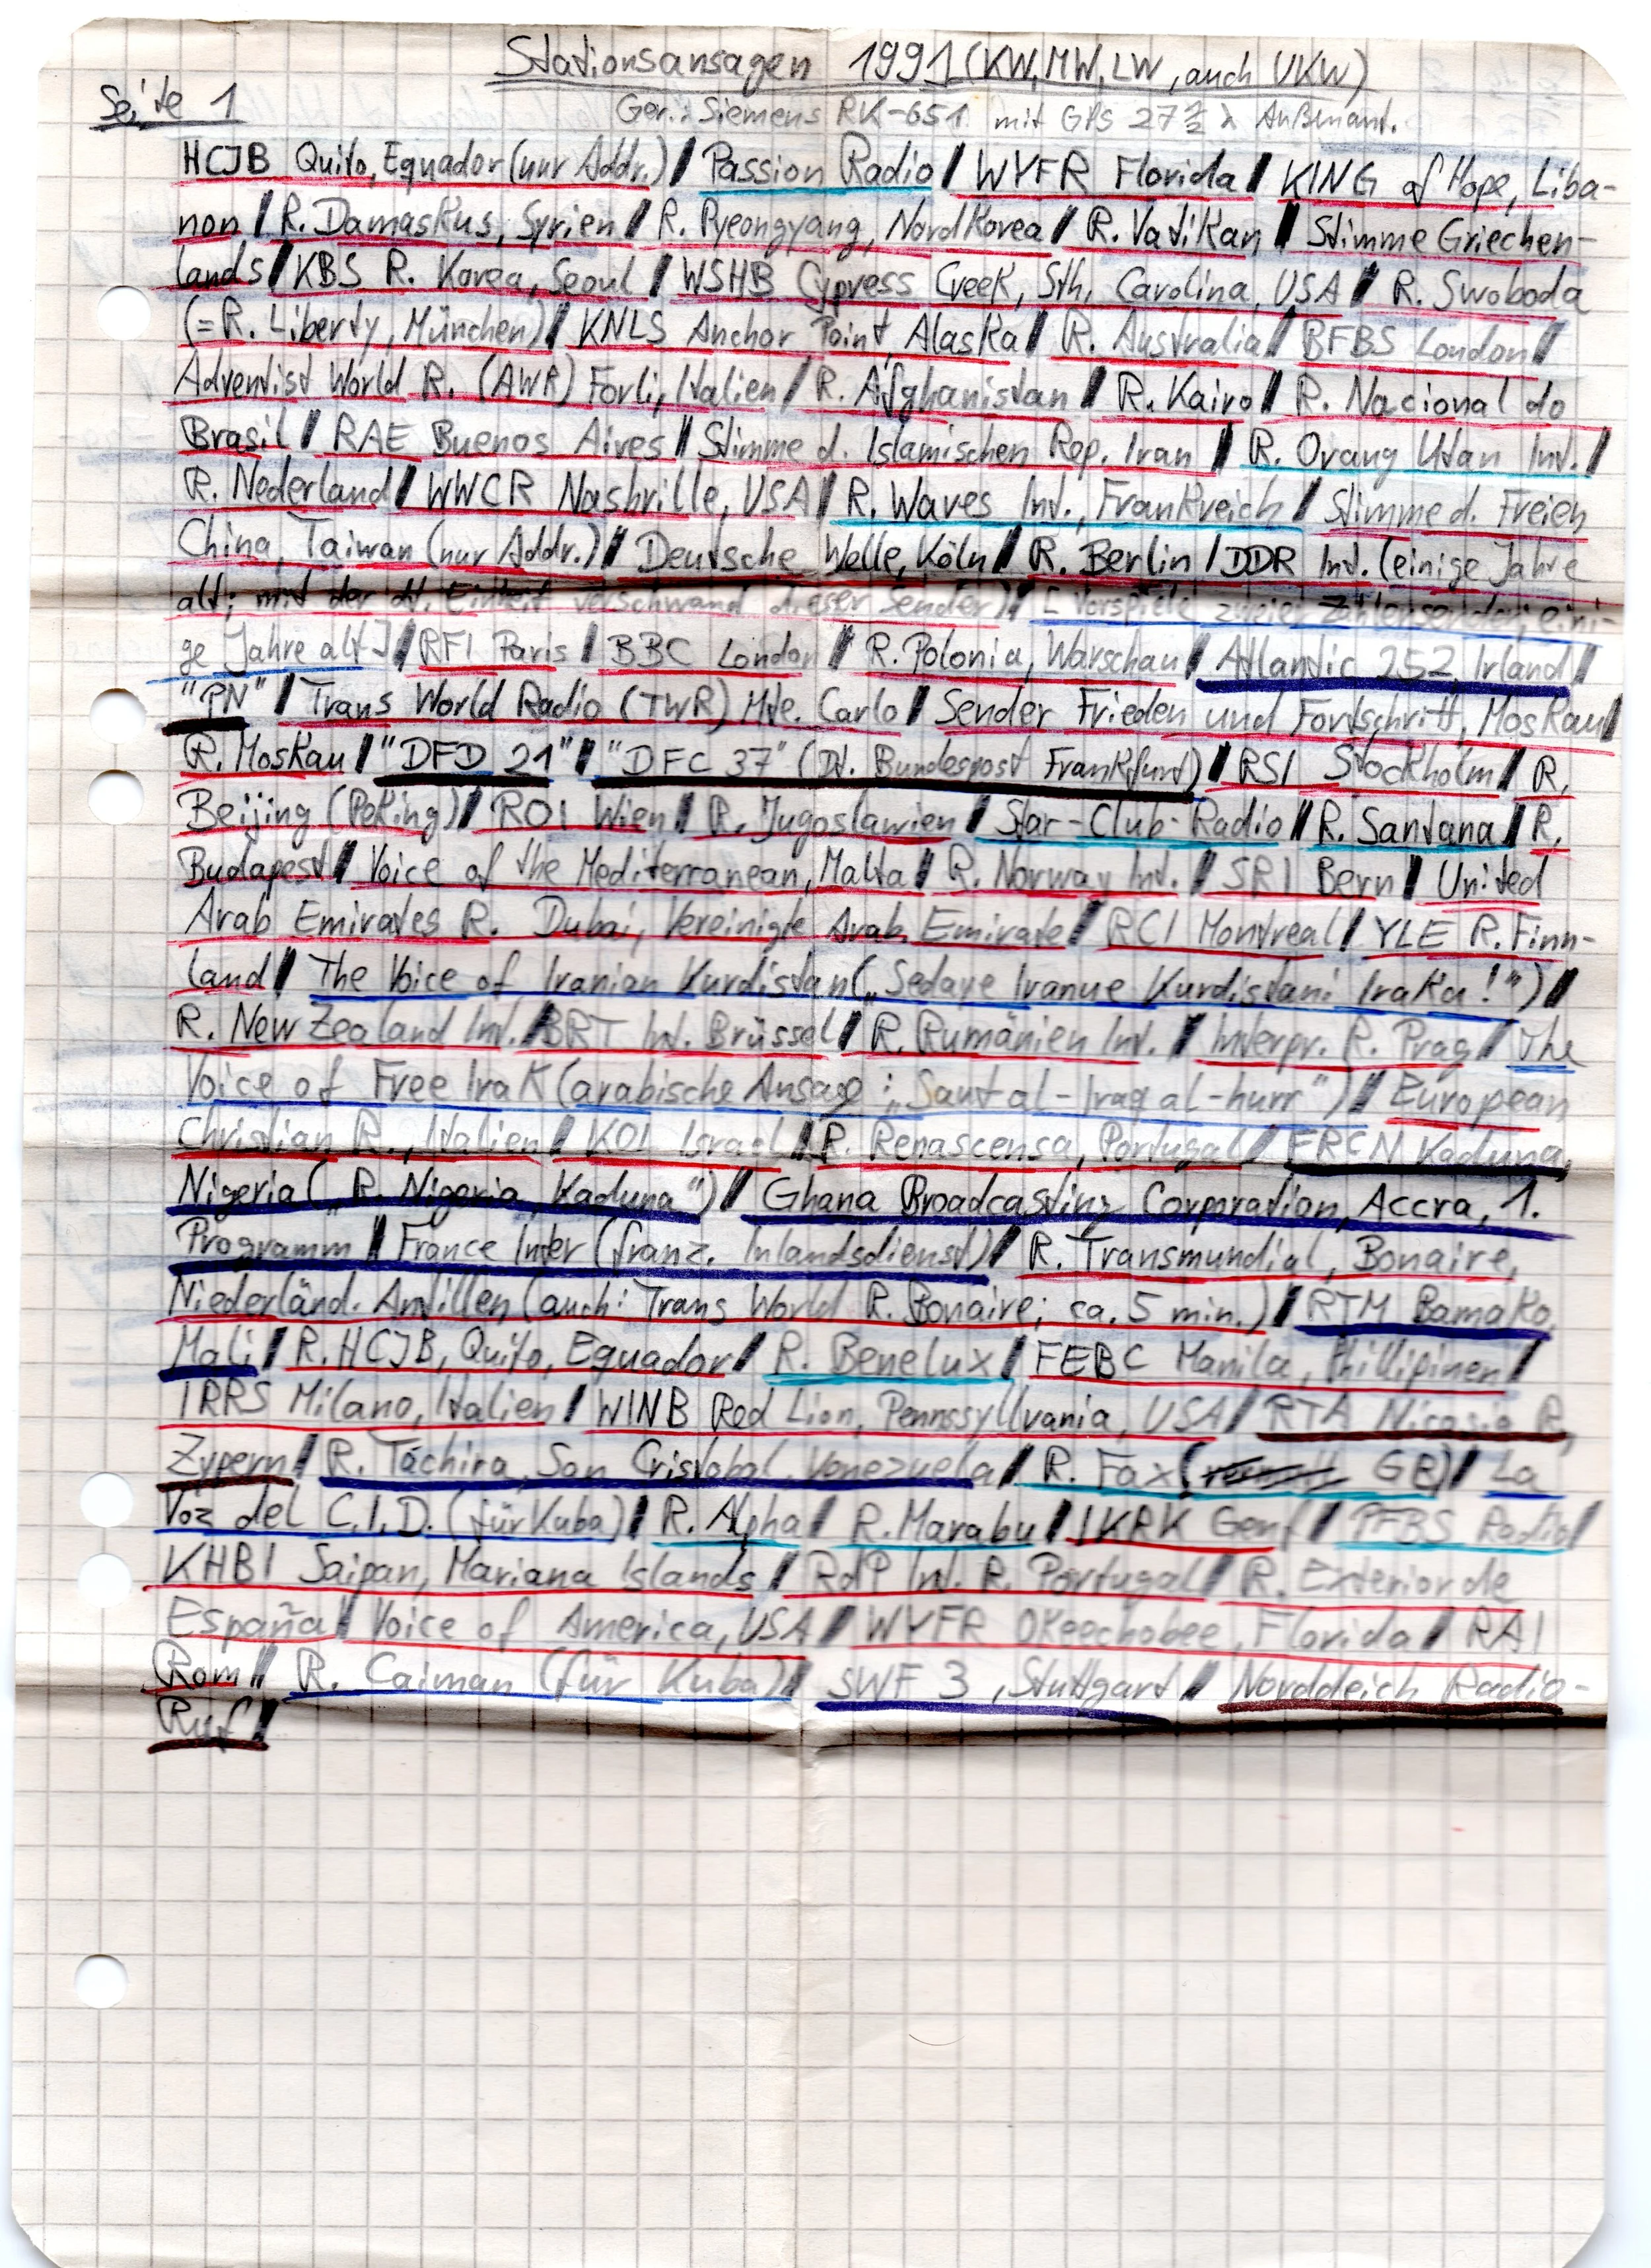 Stationsansagen 1991 (KW, MW, LW, auch UKW)
Seite 1
Ger.: Siemens RK-651 mit GPS 27 λ Außenant.
HCJB Quito, Equador (nur Addr.) / Passion Radio / WYFR Florida / KING of Hope, Liba-
non / R. Damaskus, Syrien / R. Pyeongyang, Nordkorea / R. Vatikan / Stimme Griechen-
lands / KBS R. Korea, Seoul / WSHB Cypress Creek, Sth. Carolina, USA / R. Swoboda
(=R. Liberty, München) / KNLS Anchor Point, Alaska / R. Australia / BFBS London /
Adventist World R. (AWR) Forli, Italien / R. Afghanistan / R. Kairo / R. Nacional do
Brasil / RAE Buenos Aires / Stimme d. Islamischen Rep. Iran / R. Orang Utan Int. /
R. Nederland / WWCR Nashville, USA / R. Waves Int., Frankreich / Stimme d. Freien
China, Taiwan (nur Addr.) / Deutsche Welle, Köln / R. Berlin / DDR Int. (einige Jahre
alt; mit der dt. Einheit verschwand dieser Sender) / [Vorspiele zweier Zahlensender, eini-
ge Jahre alt] / RFI Paris / BBC London / R. Polonia, Warschau / Atlantic 252, Irland /
"PN" / Trans World Radio (TWR) Mte. Carlo / Sender Frieden und Fortschritt, Moskau /
R. Moskau / "DFD 21" / "DFC 37" (Dt. Bundespost Frankfurt) / RSI Stockholm / R.
Beijing (Peking) / ROI Wien / R. Jugoslawien / Star-Club-Radio / R. Santana / R.
Budapest / Voice of the Mediterranean, Malta / R. Norway Int. / SRI Bern / United
Arab Emirates R. Dubai, Vereinigte Arab. Emirate / RCI Montreal / YLE R. Finn-
land / The Voice of Iranian Kurdistan („Sedaye Iranue Kurdistani Iraka!") /
R. New Zealand Int. / BRT Int. Brüssel / R. Rumänien Int. / Interpr. R. Prag / The
Voice of Free Irak (arabische Ansage: „Saut al-Iraq al-hurr") / European
Christian R., Italien / KOL Israel / R. Renascensa, Portugal / FRCN Kaduna,
Nigeria („R. Nigeria, Kaduna") / Ghana Broadcasting Corporation, Accra, 1.
Programm / France Inter (franz. Inlandsdienst) / R. Transmundial, Bonaire,
Niederländ. Antillen (auch: Trans World R. Bonaire; ca. 5 min.) / RTM Bamako,
Mali / R. HCJB, Quito, Equador / R. Benelux / FEBC Manila, Phillipinen /
IRRS Milano, Italien / WINB Red Lion, Pennssyllvania, USA / RTA Nicosia R,
Zypern / R. Táchira, San Cristobal, Venezuela / R. Fax ( GB) / La
Voz del C.I.D. (für Kuba) / R. Alpha / R. Marabu / IKRK Genf / PFBS Radio /
KHBI Saipan, Mariana Islands / RdP Int. R. Portugal / R. Exterior de
España / Voice of America, USA / WYFR Okeechobee, Florida / RAI
Rom / R. Caiman (für Kuba) / SWF 3, Stuttgart / Norddeich Radio-
Ruf /